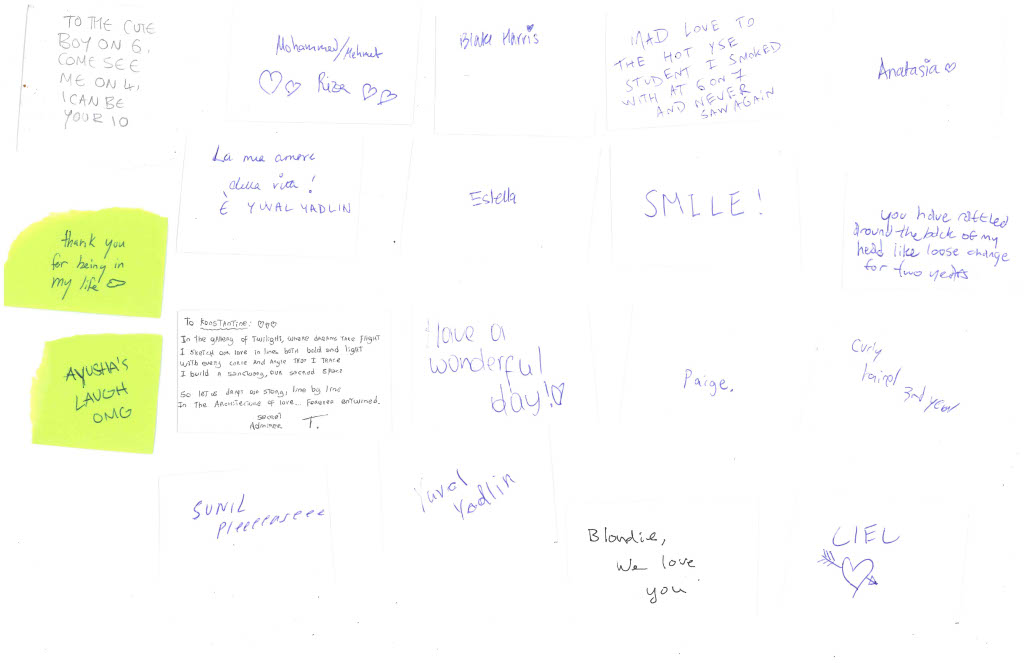 TO THE CUTE
BOY ON 6,
COME SEE
ME ON 4,
I CAN BE
YOUR 10
Mohammed/Mehmet
Riza
Blake Harris
MAD LOVE TO
THE HOT YSE
STUDENT I SMOKED
WITH AT 6 ON 7
AND NEVER
SAW AGAIN
Anatasia
La mia amore
della vita!
È YUVAL YADLIN
Estella
SMILE!
you have rattled
around the back of my
head like loose change
for two years
thank you
for being in
my life
TO KONSTANTINE:
IN the gallery of Twilight, where dreams take flight
I sketch our love in lines both bold and light
With every curve and angle that I trace
I build a sanctuary, our sacred space
So let us draft our story, line by line
In the Architecture of love... forever entwined.
secret
Admirer T.
Have a
wonderful
day!
Paige.
Curly
3rd year
AYUSHA'S
LAUGH
OMG
SUNIL
Pleeeeaseee
Yuval
Yadlin
Blondie,
We love
you
CIEL